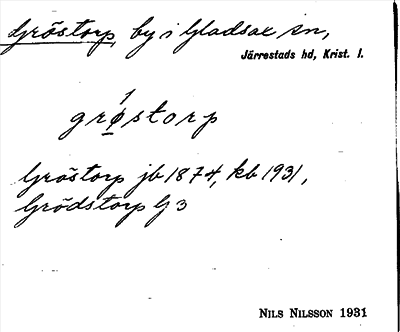 Gröstorp, by i Gladsax sn,
Järrestads hd, Krist. l.
1
grø̱storp
Gröstorp jb 1874, kb 1931,
Grödstorp G 3
NILS NILSSON 1931